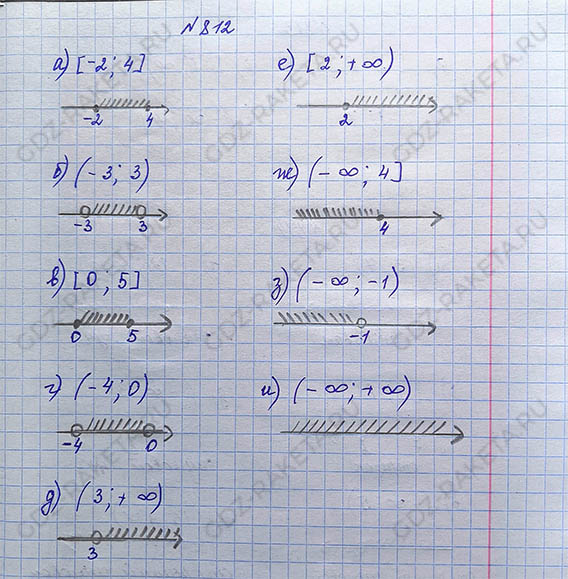 № 812
а) [-2; 4]
-2 4
б) (-3; 3)
-3 3
в) [0; 5]
0 5
г) (-4; 0)
-4 0
д) (3; +∞)
3
е) [2; +∞)
2
ж) (-∞; 4]
4
з) (-∞; -1)
-1
и) (-∞; +∞)
GDZ-RAKETA.RU